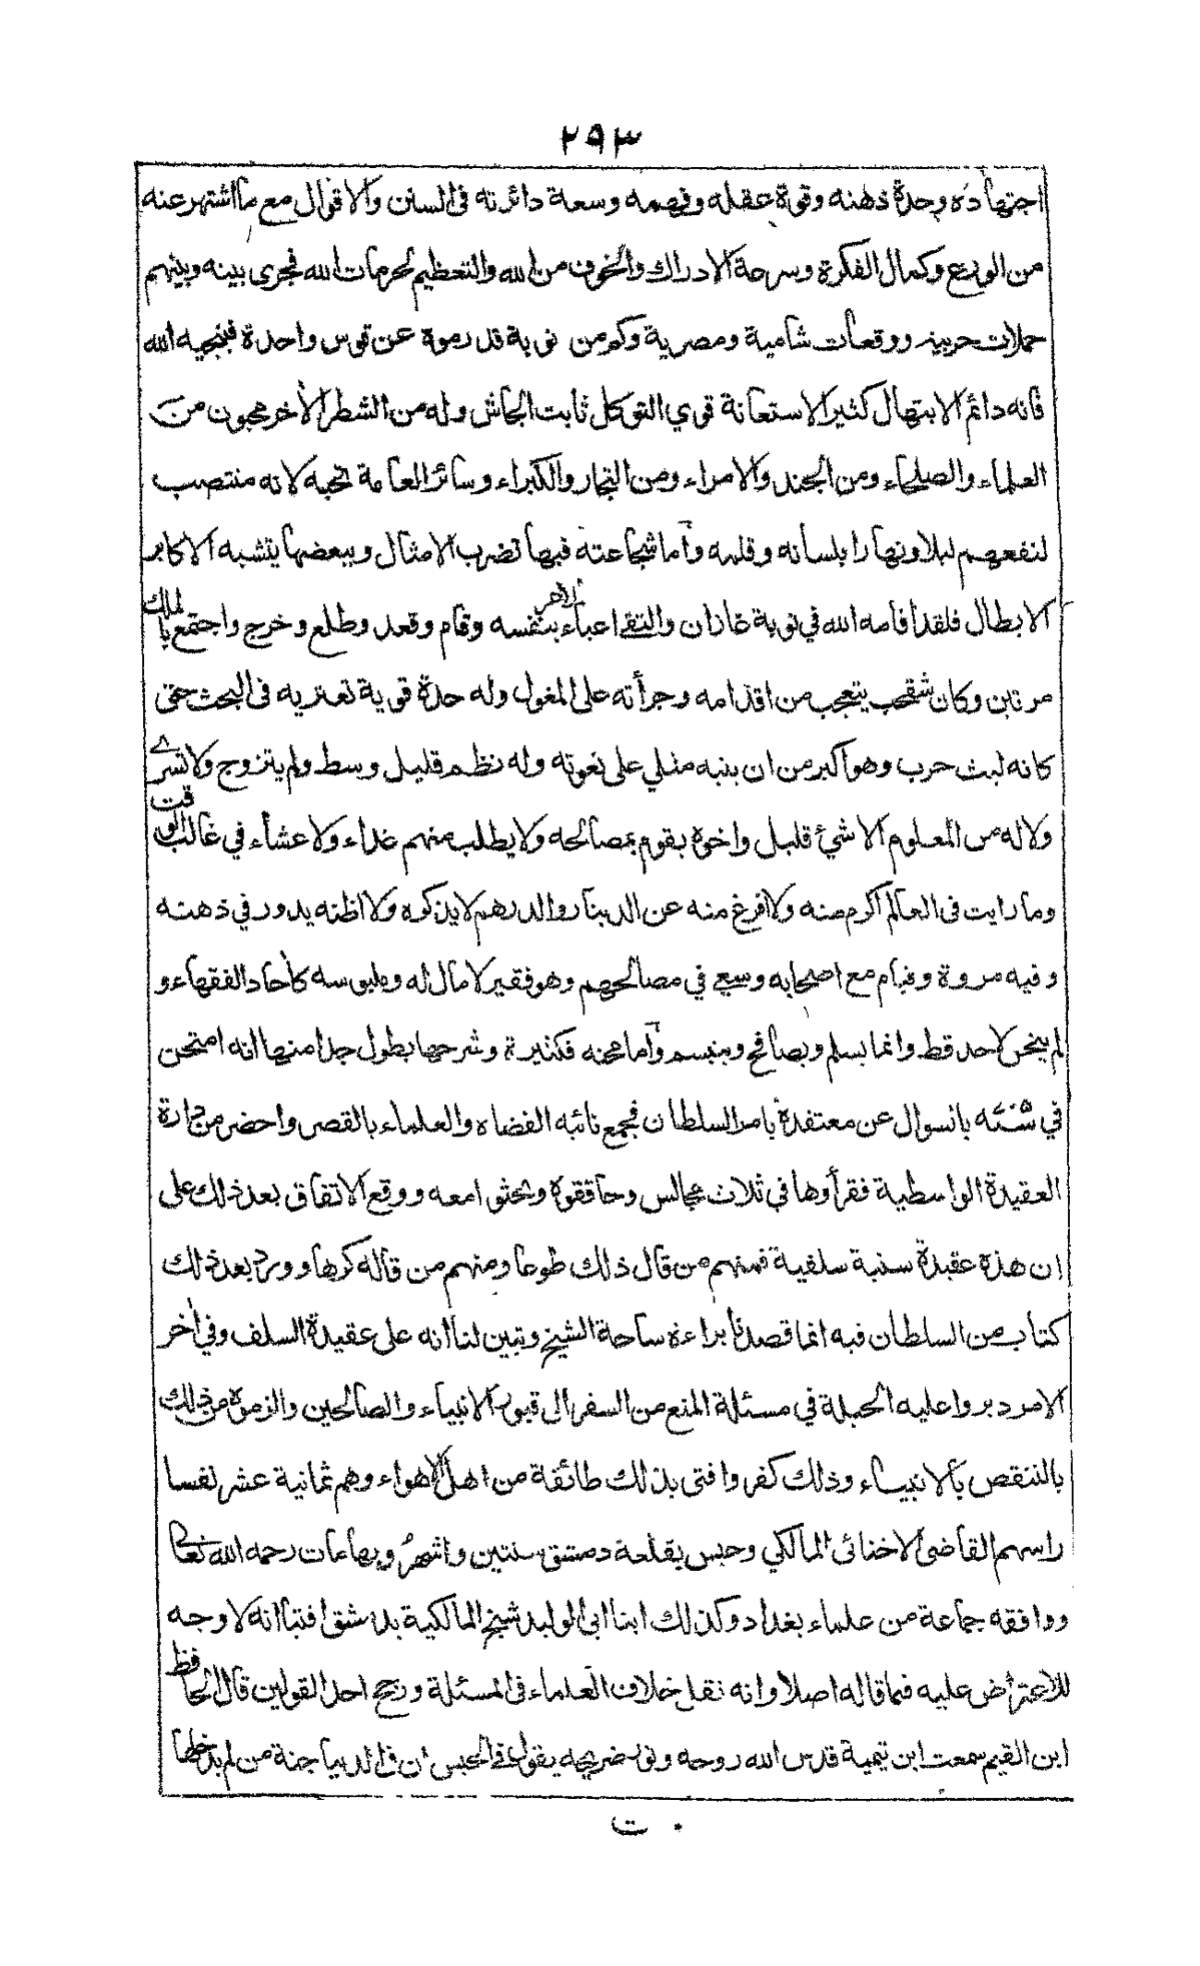 ٢٩٣
اجتهاده وحدة ذهنه وقوة عقله وفهمه وسعة دائرته فى السنن والاقوال مع ما اشتهر عنه
من الورع وكمال الفكرة وسرعة الادراك والخوف من الله والتعظيم لحرمات الله فجرى بينه وبينهم
حملات حربية ووقعات شامية ومصرية وكم من نوبة قد رموه عن قوس واحدة فينجيه الله
فانه دائم الابتهال كثير الاستعانة قوي التوكل ثابت الجاش وله من الشطر الأخر محبون من
العلماء والصلحاء ومن الجند والامراء ومن التجار والكبراء وسائر العامة تحبه لانه منتصب
لنفعهم ليلا ونهارا بلسانه وقلمه وأما شجاعته فبها تضرب الامثال وببعضها يتشبه الاكابر
الابطال فلقد اقامه الله في نوبة غازان والتقى اعباء الامر بنفسه وقام وقعد وطلع وخرج واجتمع بالملك
مرتين وكان شقحب يتعجب من اقدامه وجرأته على المغول وله حدة قوية تعتريه فى البحث حتى
كانه ليث حرب وهو أكبر من ان ينبه مثلي على نعوته وله نظم قليل وسط ولم يتزوج ولا تسرى
ولا له من المعلوم الا شيئ قليل واخوه يقوم بمصالحه ولا يطلب منهم غداء ولا عشاء في غالب الوقت
وما رايت فى العالم أكرم منه ولا افرغ منه عن الدينار والدرهم لا يذكره ولا اظنه يدور في ذهنه
وفيه مروة وقيام مع اصحابه وسعي في مصالحهم وهو فقير لا مال له وملبوسه كأحاد الفقهاء و
لم ينحن لاحد قط وانما يسلم ويصافح ويبتسم وأما محنه فكثيرة وشرحها يطول جدا منها انه امتحن
في سنة بالسوال عن معتقدة بامر السلطان فجمع نائبه القضاه والعلماء بالقصر واحضر من داره
العقيدة الواسطية فقرأوها في ثلاث مجالس وحاققوه وبحثوا معه ووقع الاتفاق بعد ذلك على
ان هذه عقيدة سنية سلفية فمنهم من قال ذلك طوعا ومنهم من قاله كرها وورد بعد ذلك
كتاب من السلطان فيه انما قصدنا براءة ساحة الشيخ وتبين لنا انه على عقيدة السلف وفي أخر
الامر دبروا عليه الحيلة في مسئلة المنع من السفر الى قبور الانبياء والصالحين والزموه من ذلك
بالتنقص بالانبياء وذلك كفر وافتى بذلك طائفة من اهل الاهواء وهم ثمانية عشر نفسا
راسهم القاضى الاخنائى المالكي وحبس بقلعة دمشق سنتين واشهر وبها مات رحمه الله تعالى
ووافقه جماعة من علماء بغداد وكذلك ابنا ابى الوليد شيخ المالكية بدمشق افتيا انه لا وجه
للاعتراض عليه فيما قاله اصلا وانه نقل خلاف العلماء فى المسئلة ورجح احد القولين قال الحافظ
ابن القيم سمعت ابن تيمية قدس الله روحه ونور ضريحه يقول في الحبس ان فى الدنيا جنة من لم يدخلها
ت